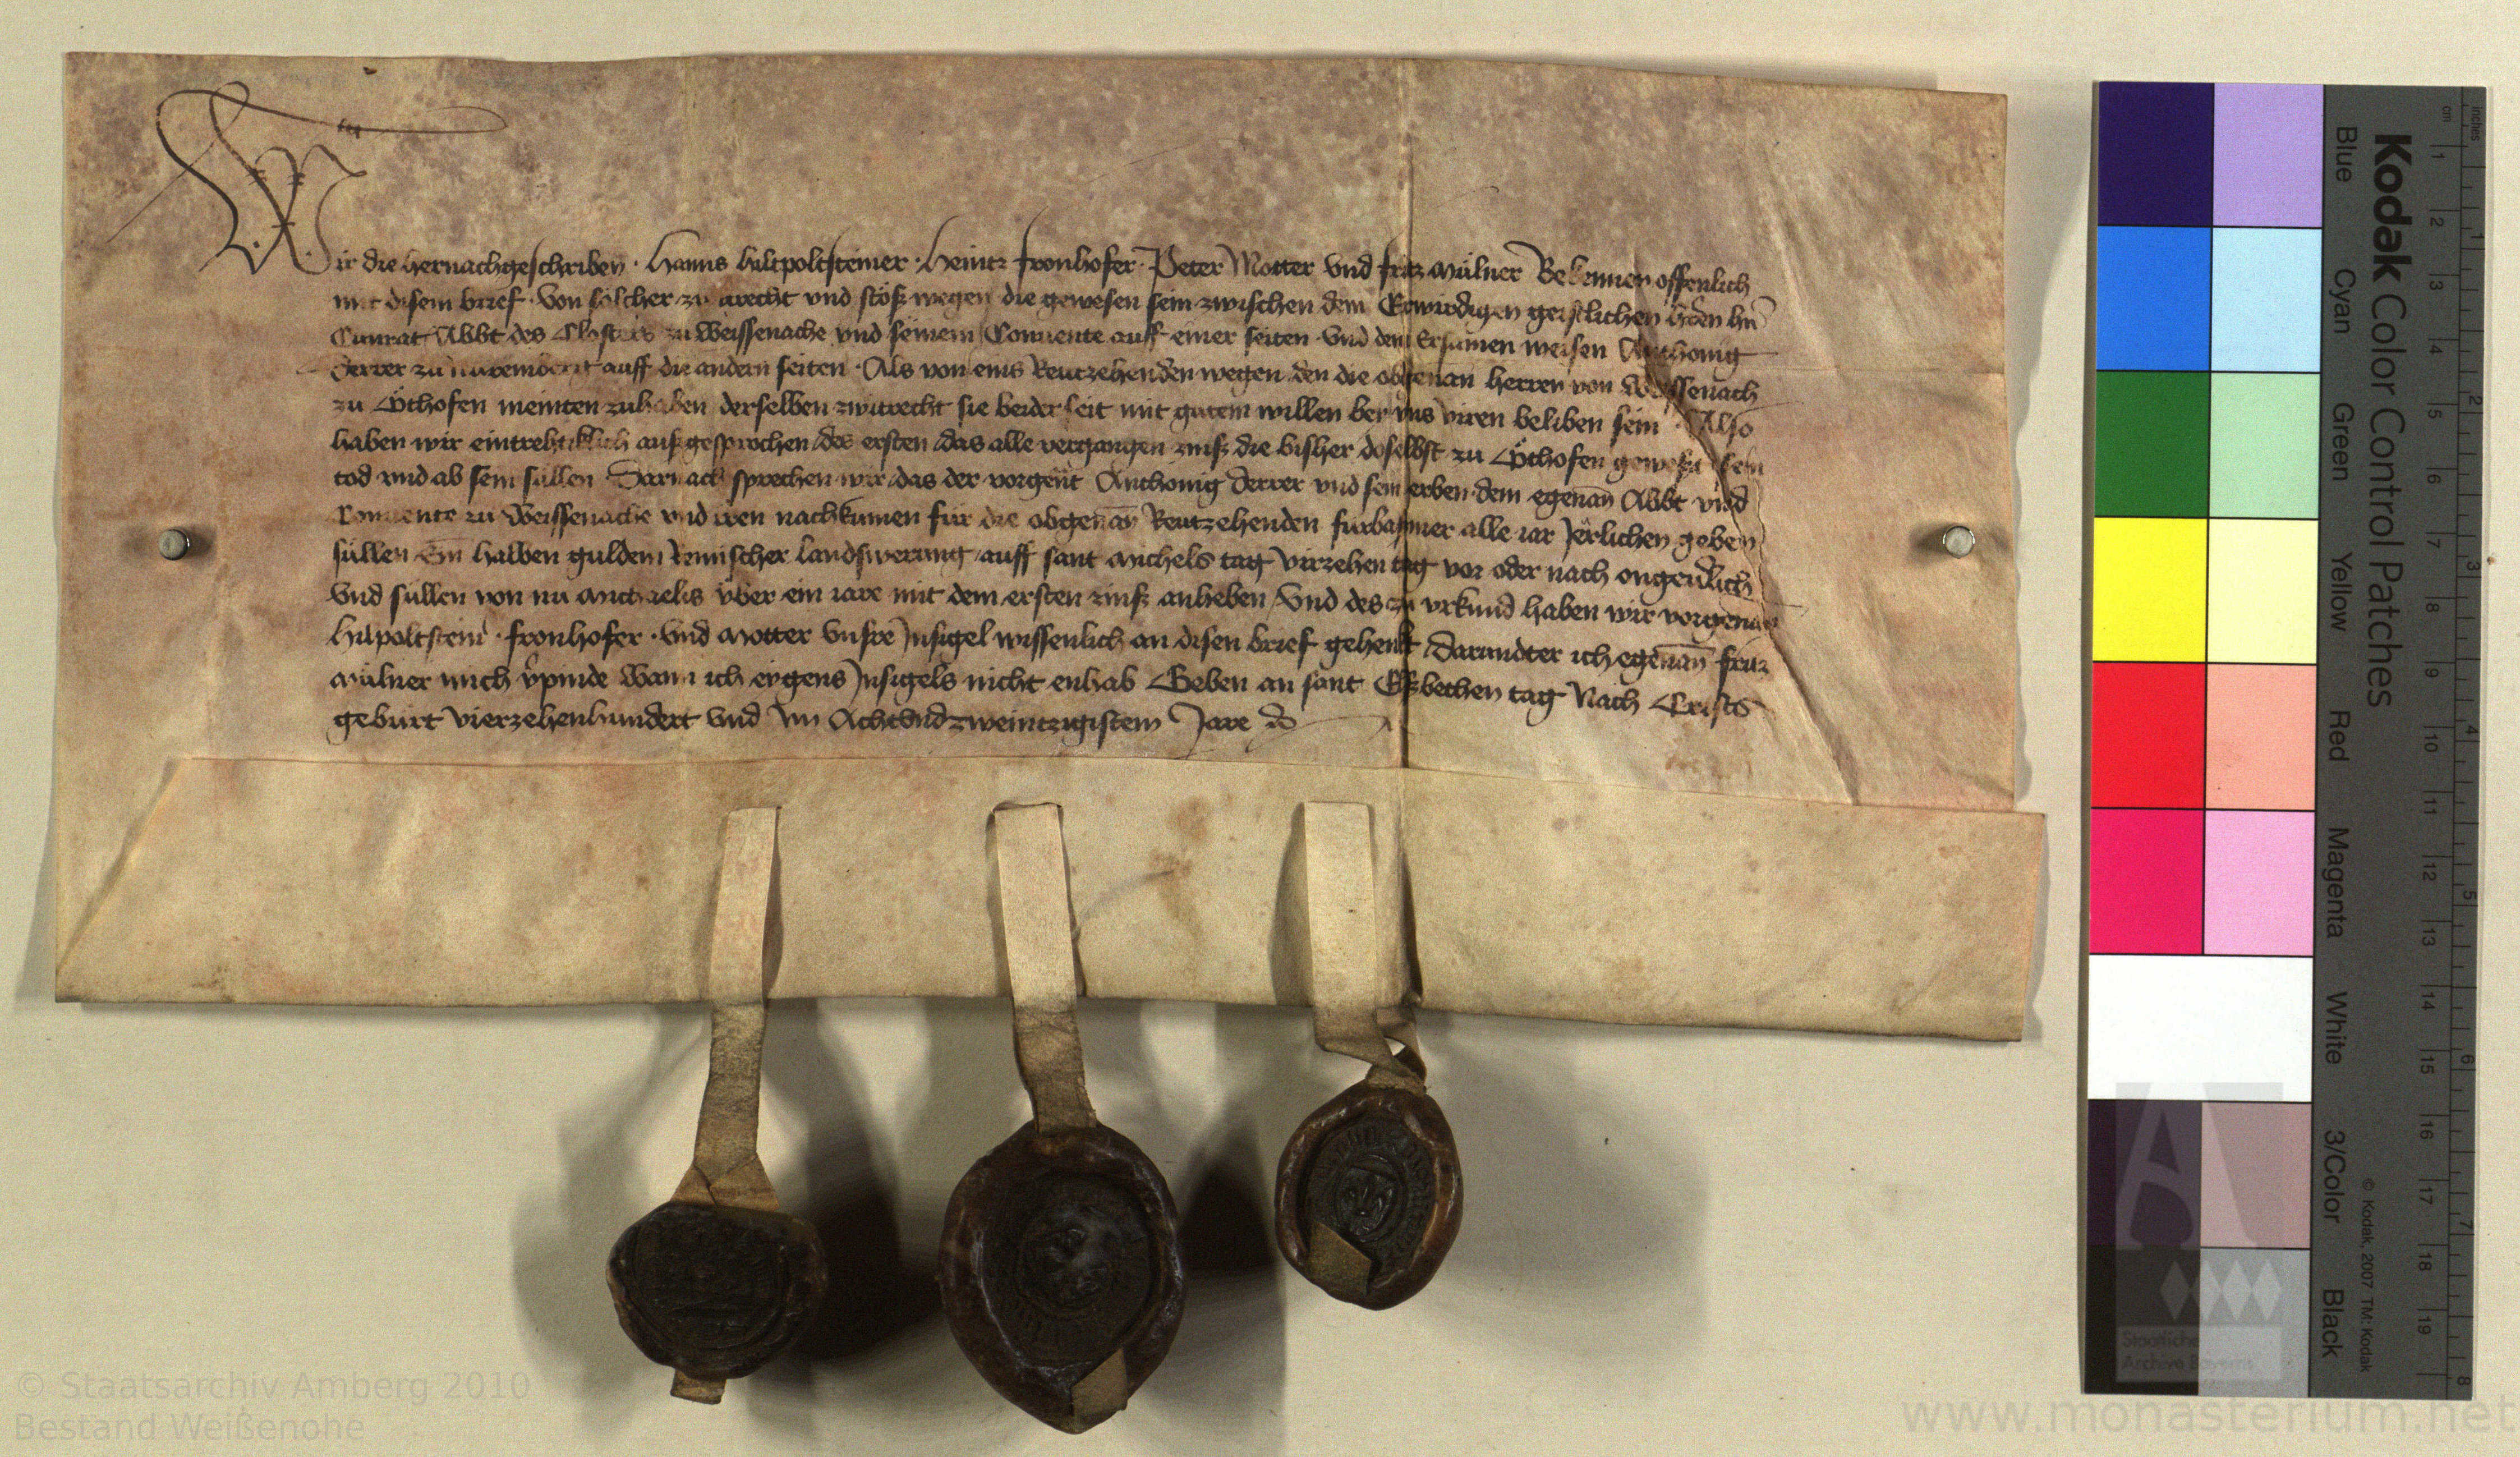 Wir die hernachgeschriben · Hanns hiltpoltsteiner · Heintz fronhofer · Peter Motter vnd fritz mülner Bekennen offenlich
mit disem brief · Von sölcher zwitrecht vnd stöß wegen die gewesen sein zwischen dem Erwirdigen geistlichen hern hern
Cunrat Abbt des Closters zu Weissenache vnd seinem Conuente auff einer seiten · Vnd dem Ersamen weisen Anthonig
derrer zu nuremberg auff die andern seiten · Als von eins Reutzehenden wegen den die obgenan herren von Weissenach
zu Othofen meinten zuhaben derselben zwitrecht sie beider seit mit gutem willen bei vns viren beliben sein · Also
haben wir eintrehtiklich auß gesprochen des ersten das alle vergangen zinß die bisher doselbst zu Othofen gewesen sein
tod vnd ab sein süllen Darnach sprechen wir das der vorgent Anthonig derrer vnd sein erben dem egenan Abbt vnd
Conuente zu Weissenache vnd iren nachkumen für die obgenan Reutzehenden fürbasmer alle iar Jerlichen geben
süllen Ein halben guldein Reinischer landswerung auff sant michels tag virzehen tag vor oder nach ongeuerlich
Vnd süllen von nu michaelis vber ein iare mit dem ersten zinß anheben Vnd des zu vrkund haben wir vorgenan
hilpoltstein · fronhofer · Vnd Motter Vnsre Jnsigel wissenlich an disen brief gehenkt darundter ich egenan fritz
mülner mich vpinde Wann ich eygens Jnsigels nicht enhab Geben an sant Elsbethen tag Nach Crists
geburt Vierzehenhundert Vnd Jm Achtvndzweintzigistem Jare
Kodak Color Control Patches
Blue Cyan Green Yellow Red Magenta White 3/Color Black
© Kodak, 2007 TM: Kodak
cm 1 2 3 4 5 6 7 8 9 10 11 12 13 14 15 16 17 18 19
inches 1 2 3 4 5 6 7 8
Staatliche
Archive Bayerns
© Staatsarchiv Amberg 2010
Bestand Weißenohe
www.monasterium.net